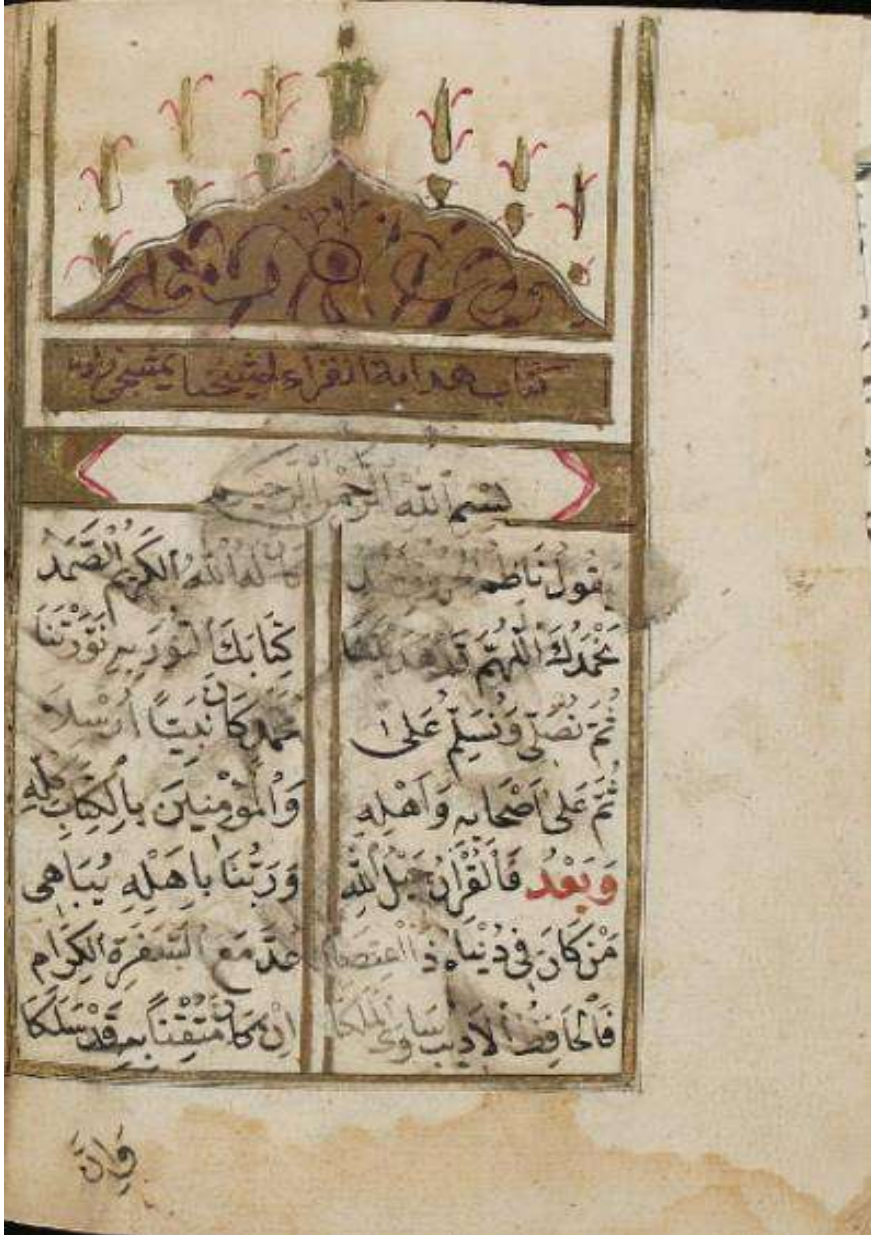 كتاب هداية القراء لشيخنا
بسم الله الرحمن الرحيم
يقول ناظمه الله الكريم الصمد
نحمدك اللهم قد هديتنا كتابك النور به نورتنا
ثم نصلي ونسلم على محمد كان نبيا ارسلا
ثم على اصحابه واهله والمؤمنين بالكتاب كله
وبعد فالقرآن حبل الله وربنا باهله يباهي
من كان في دنياه ذا اعتصام عد مع السفرة الكرام
فالحافظ الاديب ساوى الملكا ان كان متقنا به قد سلكا
وان